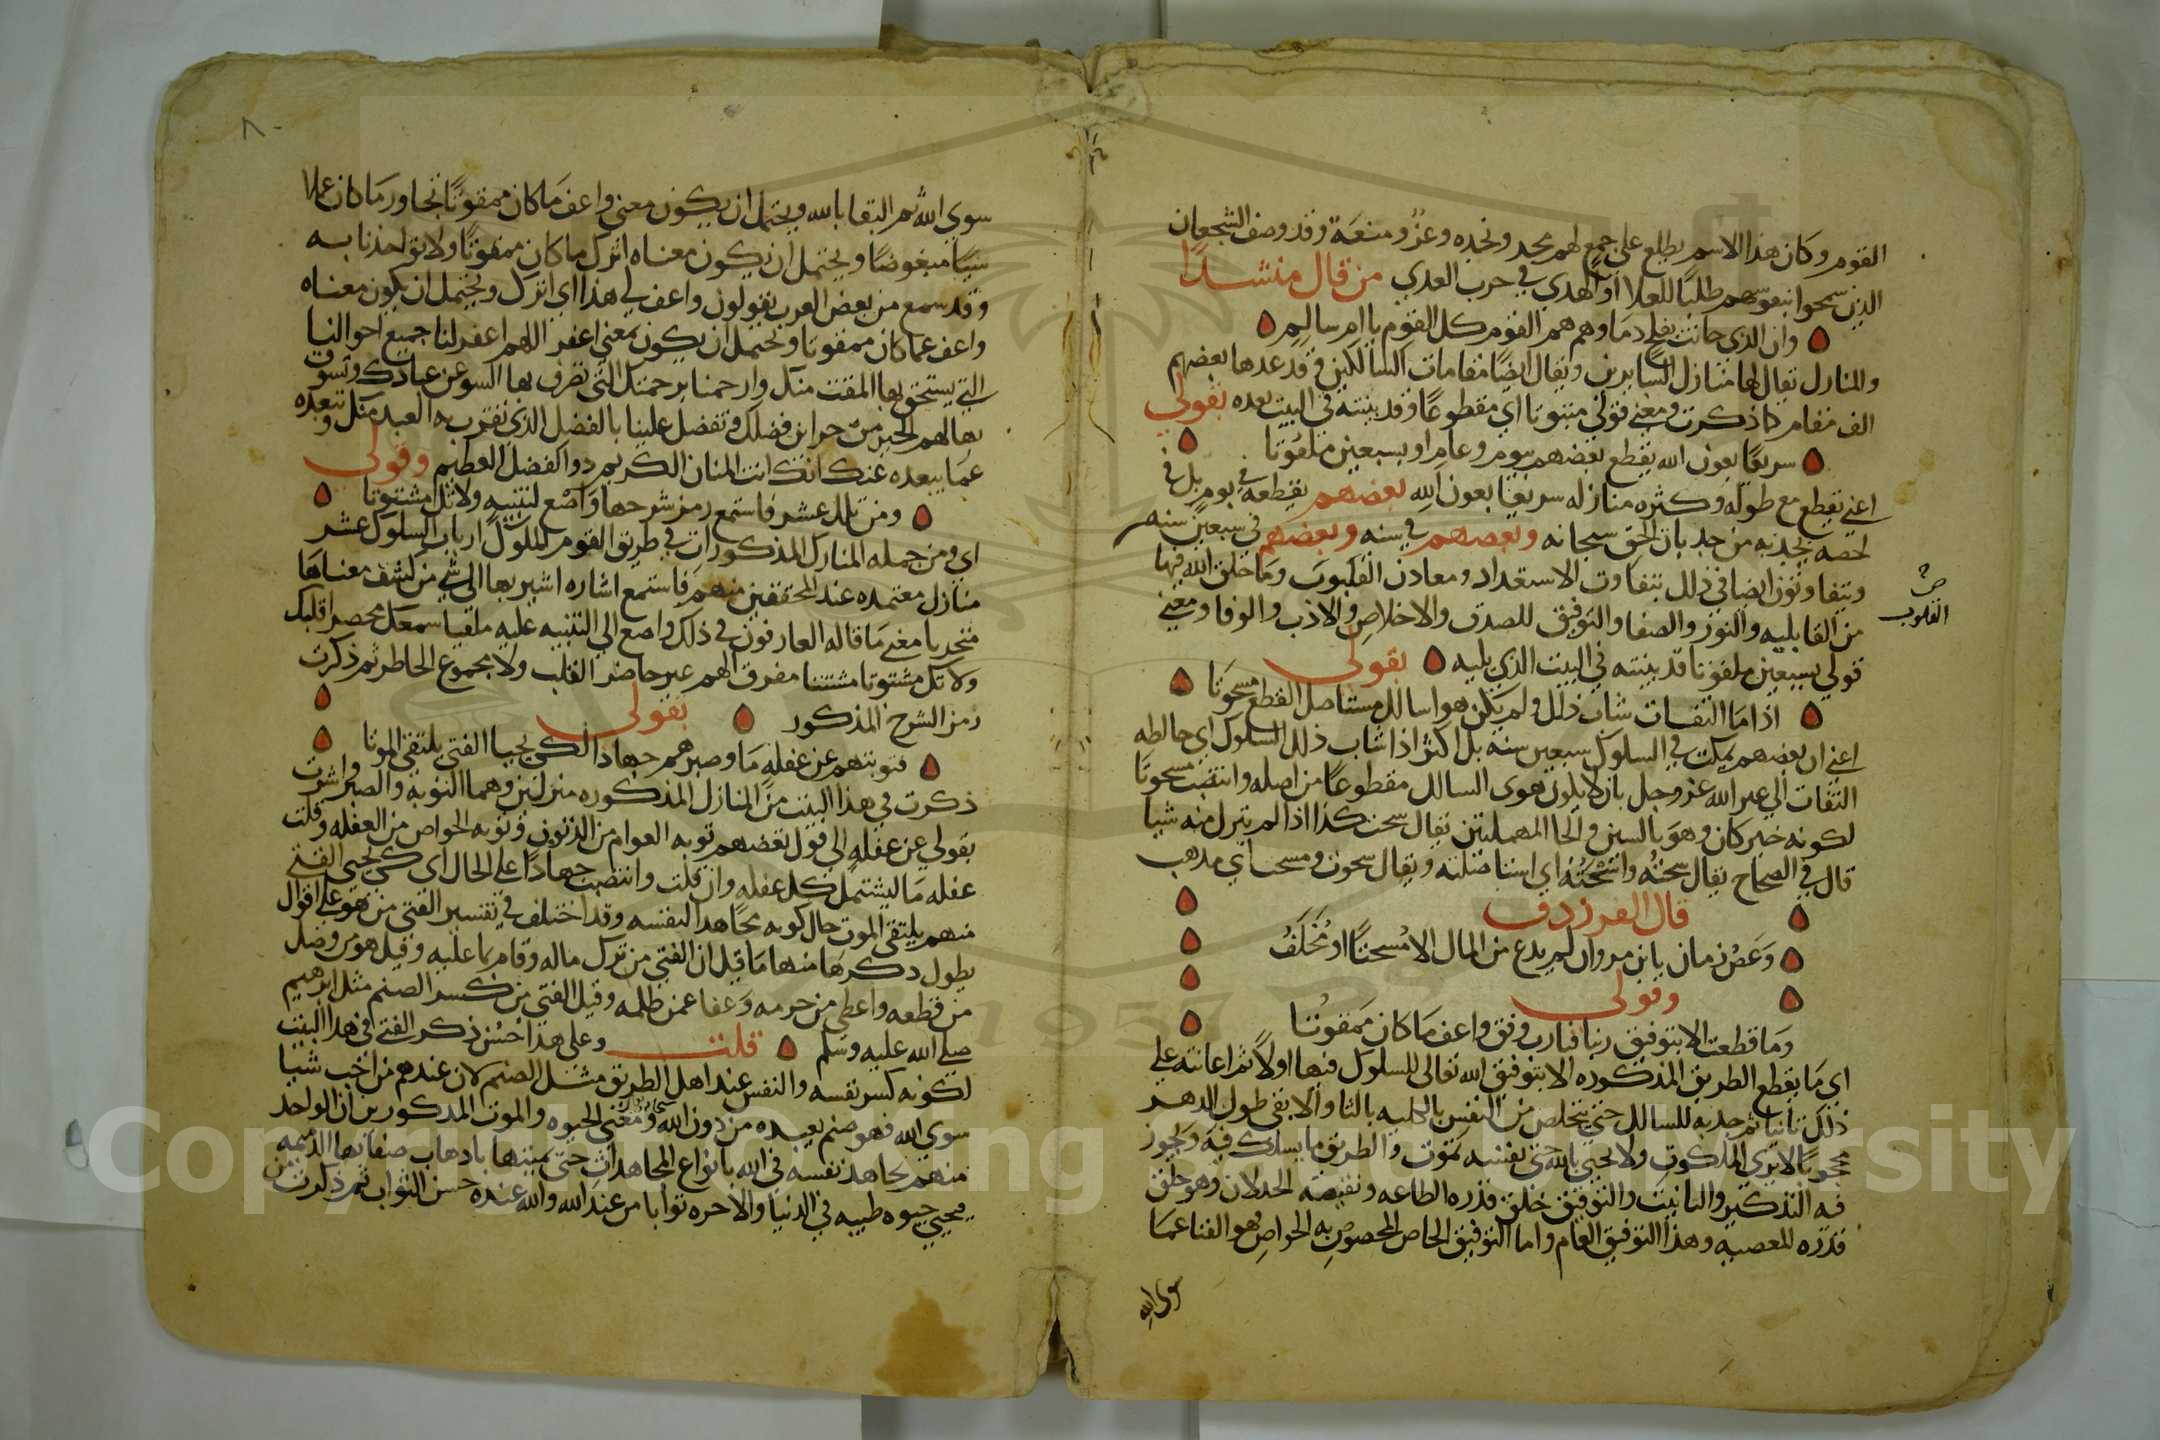 القوم وكان هذا الاسم يطلع على جمع لهم مجد ونجده وعز ومنعة وقد وصف الشجعان
الذين سمحوا بنفوسهم طلبا للعلا او الهدى في حرب العدى من قال منشدا
وان الذي حانت بفلج دماوهم هم القوم كل القوم يا ام سالم
والمنازل يقال لها منازل السايرين ويقال ايضا مقامات السالكين وقد عدها بعضهم
الف مقام كما ذكرت ومعنى قولي مبتوتا اي مقطوعا وقد بينته في البيت بعده بقولي
سريعا بعون الله يقطع بعضهم بيوم وعام او بسبعين ملفوتا
اعني يقطع مع طوله وكثره منازله سريعا بعون الله بعضهم يقطعه في يوم بل في
لحصه بجذبه من جذبات الحق سبحانه وبعضهم في سنه وبعضهم في سبعين سنه
ويتفاوتون ايضا في ذلك بتفاوت الاستعداد ومعادن القلوب وما خلق الله فيها
من القابليه والنور والصفا والتوفيق للصدق والاخلاص والادب والوفا ومعنى
صح
القلوب
قولي بسبعين ملفوتا قد بينته في البيت الذي يليه بقولي
اذا ما التفات شاب ذلك ولم يكن هوا سالك مستاصل القطع مسحوتا
اعني ان بعضهم يمكث في السلوك سبعين سنه بل اكثر اذا شاب ذلك السلوك اي خالطه
التفات الى غير الله عز وجل بان لا يكون هوى السالك مقطوعا من اصله وانتصب مسحوتا
لكونه خبر كان وهو بالسين والحا المهملتين يقال سحت كذا اذا لم يترك منه شيا
قال في الصحاح يقال سحته واسحته اي استاصلته ويقال سحوت ومسحت اي مذهب
قال الفرزدق
وعض زمان يا بن مروان لم يدع من المال الا مسحتا او مخلف
وقولي
وما قطعت الا بتوفيق ربنا فيا رب وفق واعف ما كان ممقوتنا
اي ما يقطع الطريق المذكوره الا بتوفيق الله تعالى للسلوك فيها اولا ثم اعانته على
ذلك ثانيا ثم جذبه للسالك حتى يتخلص من النفس بالكليه ثالثا والا بقي طول الدهر
محجوبا لا يرى الملكوت ولا يحيى بالله حتى نفسه تموت والطريق ما يسلك فيه ويجوز
فيه التذكير والتانيث والتوفيق خلق قدره الطاعه ونقيضه الخذلان وهو خلق
قدره المعصيه وهذا التوفيق العام واما التوفيق الخاص المخصوص به الخواص فهو الفنا عما
سوى الله
٨٠
سوى الله ثم البقا بالله ويحتمل ان يكون معنى واعف ما كان ممقوتا تجاوز ما كان عملا
سيا مبغوضا ويحتمل ان يكون معناه اترك ما كان ممقوتا ولا تواخذنا به
وقد سمع من بعض العرب يقولون واعف لي هذا اي اترك ويحتمل ان يكون معناه
واعف عما كان ممقوتا ويحتمل ان يكون بمعنى اغفر اللهم اغفر لنا جميع احوالنا
التي يستحق بها المقت منك وارحمنا برحمتك التي تصرف بها السو عن عبادك وتسوق
بها لهم الخير من خزاين فضلك وتفضل علينا بالفضل الذي تقرب به العبد منك وتبعده
عما يبعده عنك انك انت المنان الكريم ذو الفضل العظيم وقولي
ومن تلك عشر فاستمع رمز شرحها واصغ لتنبيه ولا تك مشتوتا
اي ومن جمله المنازل المذكورات في طريق القوم الملوك ارباب السلوك عشر
منازل معتمده عند المحققين منهم فاستمع اشاره اشير بها الى شي من كشف معناها
متحريا معنى ما قاله العارفون في ذلك واصغ الى التنبيه عليه ملقيا سمعك محضرا قلبك
ولا تك مشتوتا مشتتا مفرق الهم غير حاضر القلب ولا مجموع الخاطر ثم ذكرت
رمز الشرح المذكور بقولي
فتوبتهم عن غفله ما وصبرهم جهادا لكي يحيا الفتى يلتقي الموتا
ذكرت في هذا البيت من المنازل المذكوره منزلتين وهما التوبه والصبر واشرت
بقولي عن غفله الى قول بعضهم توبه العوام من الذنوب وتوبه الخواص من الغفله وقلت
غفله ما ليشتمل كل غفله وان قلت وانتصب جهادا على الحال اي كي يحيى الفتى
منهم يلتقي الموت حال كونه مجاهدا لنفسه وقد اختلف في تفسير الفتى من هو على اقوال
يطول ذكرها منها ما قيل ان الفتى من ترك ماله وقام بما عليه وقيل هو من وصل
من قطعه واعطى من حرمه وعفا عمن ظلمه وقيل الفتى من كسر الصنم مثل ابرهيم
صلى الله عليه وسلم قلت وعلى هذا حسن ذكر الفتى في هذا البيت
لكونه كسر نفسه والنفس عند اهل الطريق مثل الصنم لان عندهم من احب شيا
سوى الله فهو صنم يعبده من دون الله ومعنى الحيوه والموت المذكورين ان الواحد
منهم يجاهد نفسه في الله بانواع المجاهدات حتى يميتها باذهاب صفاتها الذميمه
فيحيى حيوه طيبه في الدنيا والاخره ثوابا من عند الله والله عنده حسن الثواب ثم ذكرت من
Copyright © King Saud University
1957